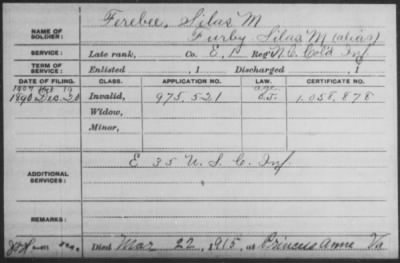 NAME OF SOLDIER: Ferebee, Silas M
Furby Silas M (alias)
SERVICE: Late rank, Co. E, 1 Reg't N.C. Col'd Inf
TERM OF SERVICE: Enlisted , 1 Discharged , 1
DATE OF FILING. CLASS. APPLICATION NO. LAW. CERTIFICATE NO.
1890 Dec. 20 Invalid, 975,521 1.058,878
Widow,
Minor,
ADDITIONAL SERVICES: E 35 U.S.C. Inf
REMARKS:
Died Mar 22, 1915, at Princess Anne Va